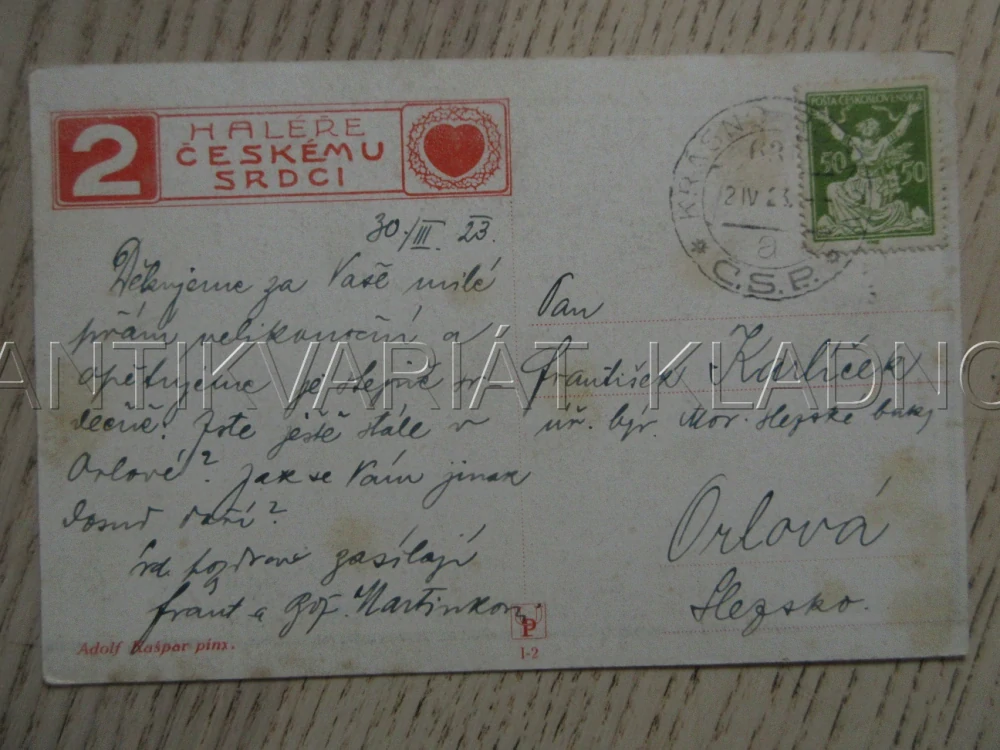 2 HALÉŘE
ČESKÉMU
SRDCI
30./III. 23.
Děkujeme za Vaše milé
přání velikonoční a
opětujeme je stejně sr-
dečně. Jste ještě stále v
Orlové? Jak se Vám jinak
dosud daří?
Srd. pozdrav zasílají
Frant. a Martinkovi
Adolf Kašpar pinx.
I-2
POŠTA ČESKOSLOVENSKÁ
50 50
KRASNO
2 IV 23
a
Č.S.P.
Pan
František Karlíček
úř. Mor. Slezské banky
Orlová
Slezsko.
ANTIKVARIÁT KLADNO